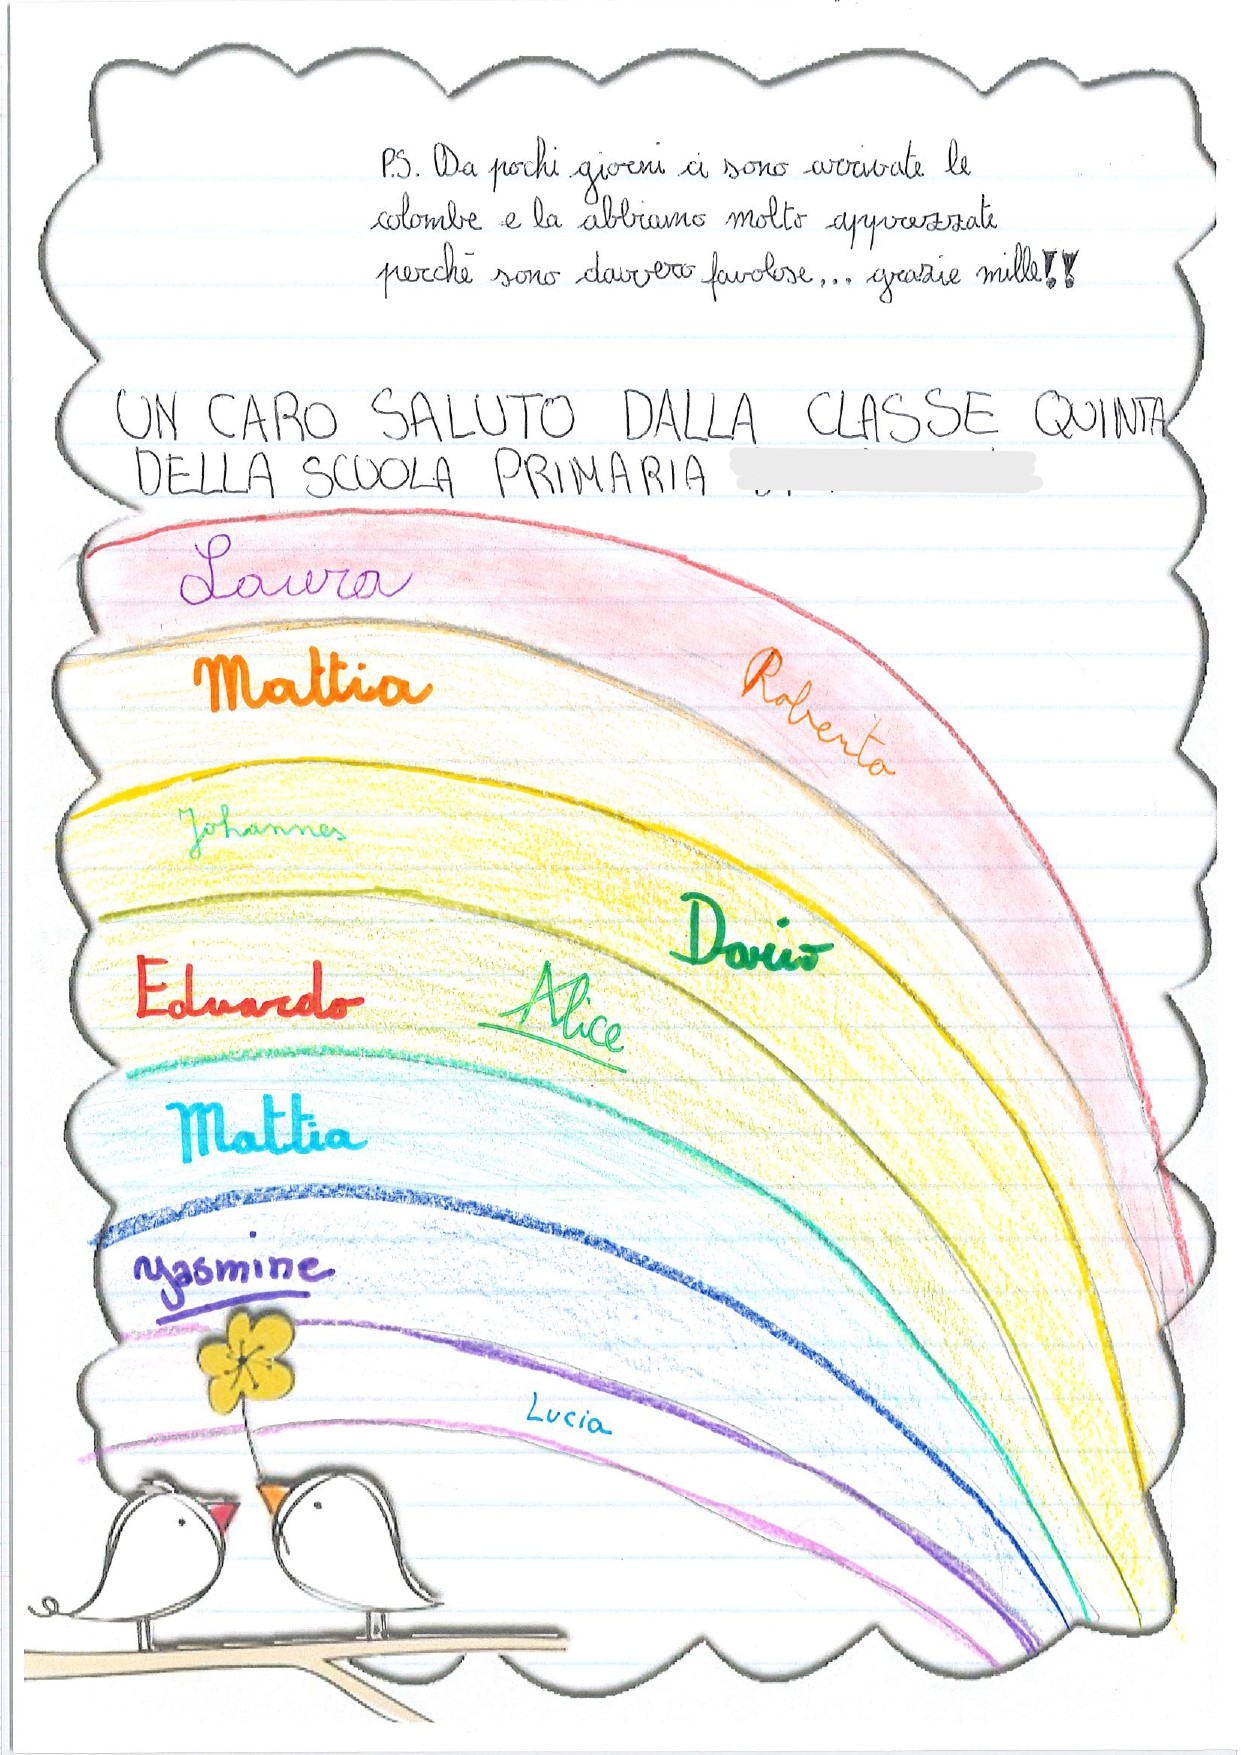 P.S. Da pochi giorni ci sono arrivate le
colombe e la abbiamo molto apprezzate
perchè sono davvero favolose... grazie mille!!
UN CARO SALUTO DALLA CLASSE QUINTA
DELLA SCUOLA PRIMARIA
Laura
Mattia
Roberto
Johannes
Dario
Eduardo
Alice
Mattia
Yasmine
Lucia